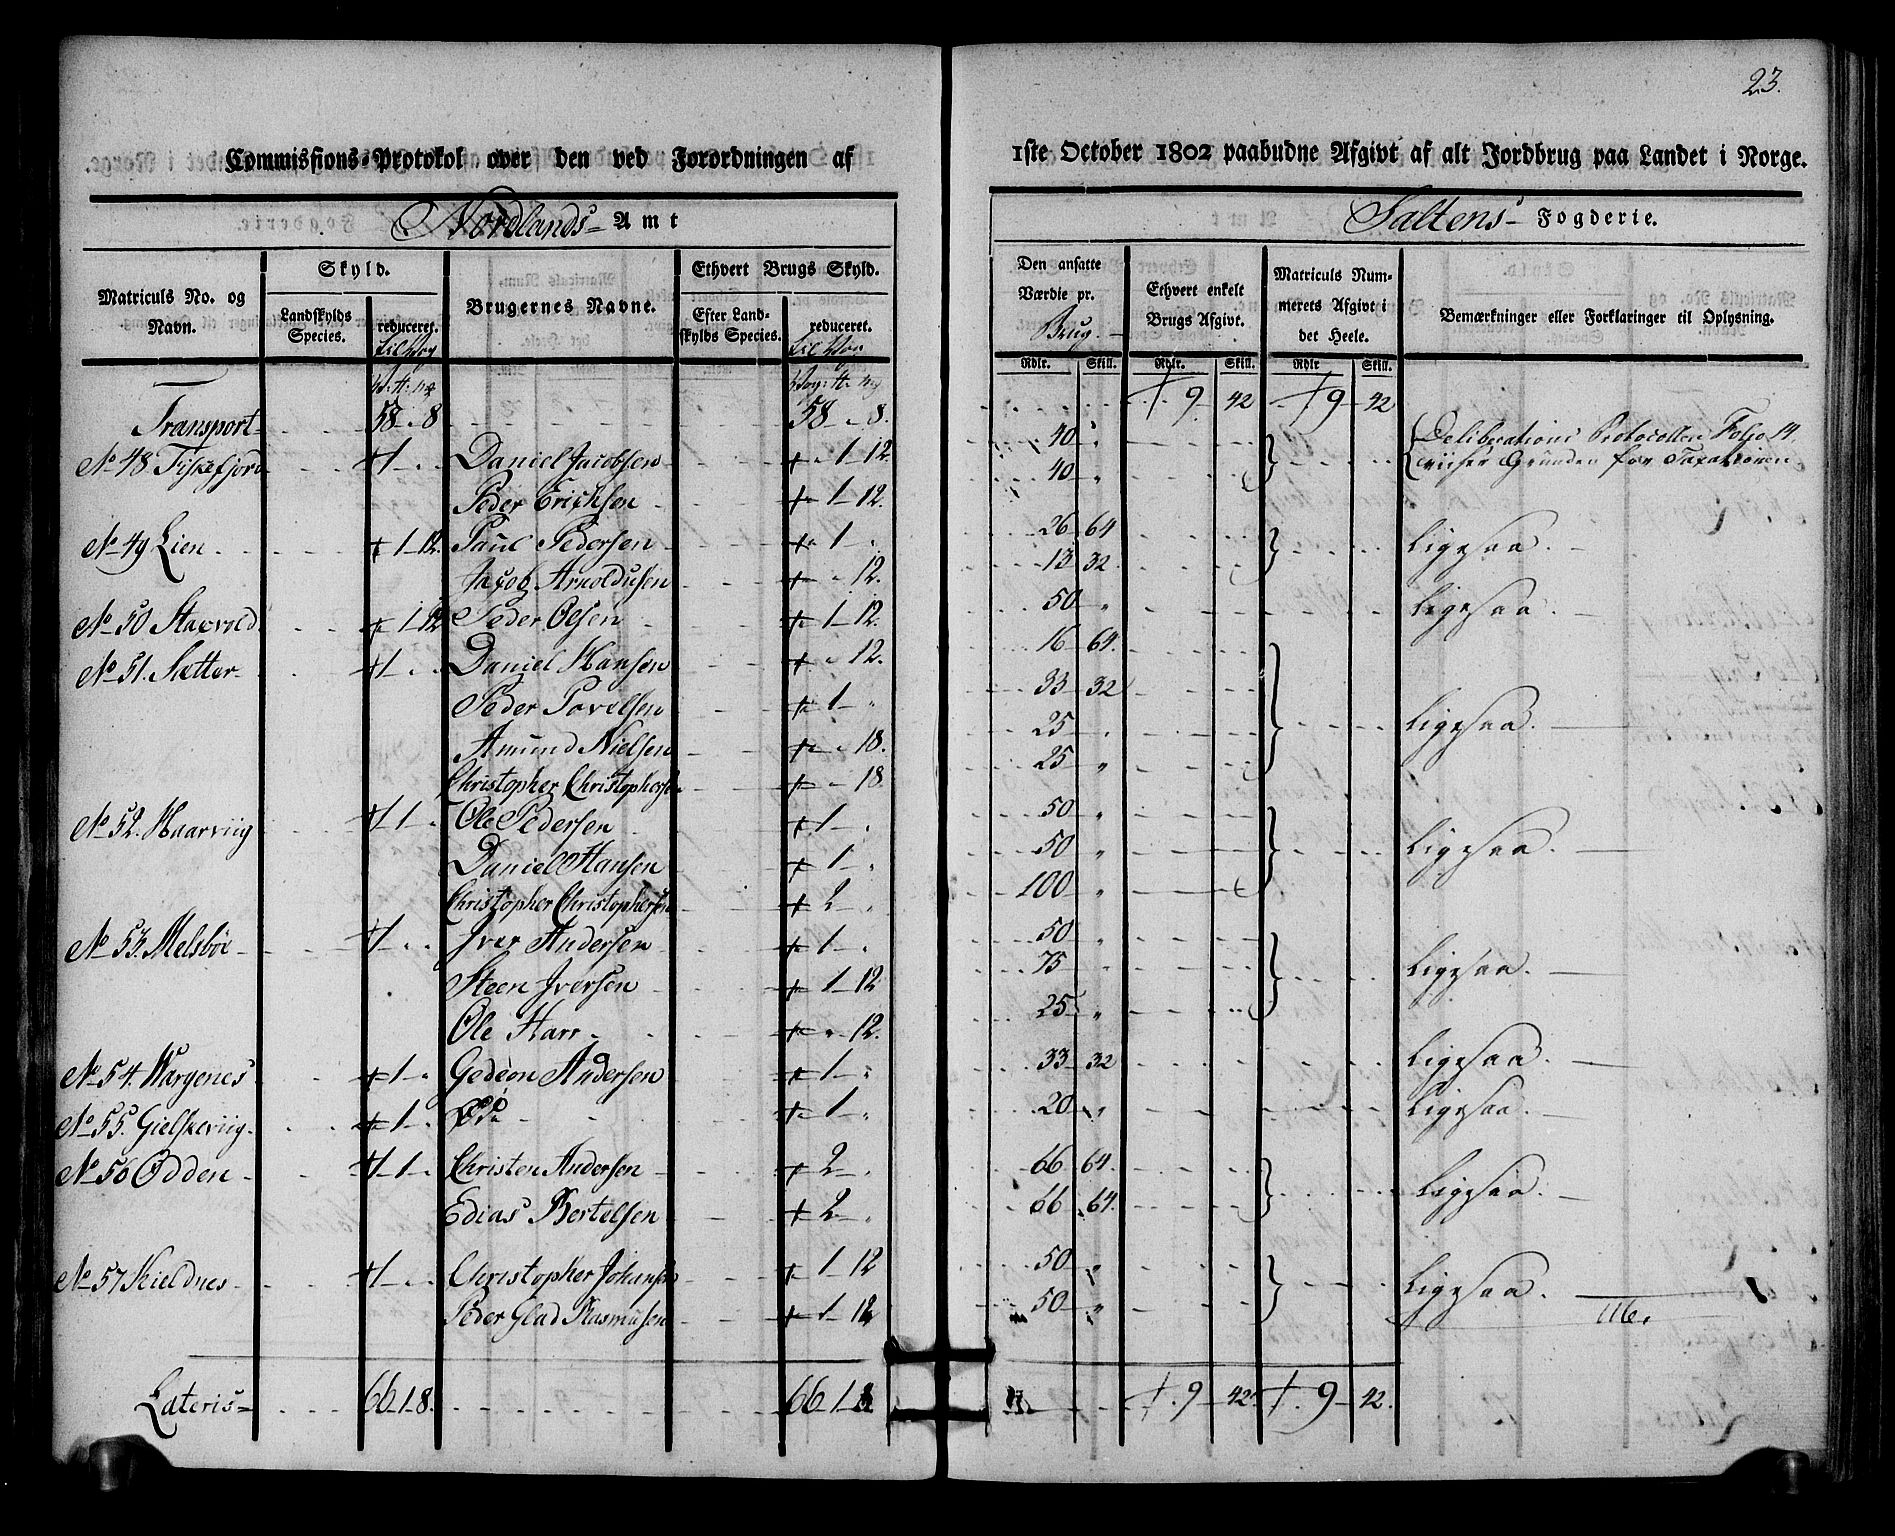 23.
Commissions-Protokol over den ved Forordningen af 1ste October 1802 paabudne Afgivt af alt Jordbrug paa Landet i Norge.
Nordlands Amt
Saltens Fogderie.
Matriculs No. og Navn.
Skyld.
Landskylds Species.
reduceret.
til Vog
Brugernes Navne.
Ethvert Brugs Skyld.
Efter Landskylds Species.
reduceret.
til Vog
Den ansatte Værdie pr.
Brug
Rdlr. Skill.
Ethvert enkelt Brugs Afgivt.
Rdlr. Skill.
Matriculs Nummerets Afgivt i det Heele.
Rdlr Skill.
Bemærkninger eller Forklaringer til Oplysning.
Transport 58 - 8 58 - 8. 9 42 9 42
No 48 Tysfjord 1 Daniel Jacobsen 1 12. 40 Deliberations Protocollen Folio 14,
Peder Erichsen 1 12. 40 viiser Grunden for Taxationen
No 49 Lien 1 12. Paul Pedersen 1 26 64 Ligesaa.
Jacob Arnoldusen 12. 13 32.
No 50 Staxvold 1 12 Peder Olsen 1 12. 50 Ligesaa
No 51. Sætter 1 Daniel Hansen 12. 16 64.
Peder Povelsen 1 33 32
Amund Nielsen 18. 25 Ligesaa.
Christopher Christophersen 18. 25
No 52. Haarviig 1 Ole Pedersen 1 50
Daniel Hansen 1 50 Ligesaa.
Christopher Christophersen 2 100
No 53. Melsbøe 1 Iver Andersen 1 50
Steen Iversen 1 12 75 Ligesaa.
Ole Harr 12. 25
No 54. Wargenes 1 Gedeon Andersen 1 33 32 Ligesaa.
No 55. Gielskeviig 1 Do 1 20 Ligesaa.
No 56 Odden 1 Christen Andersen 2 66 64. Ligesaa.
Edias Bertelsen 2 66 64.
No 57 Kieldnes 1 Christopher Johansen 1 12 50 Ligesaa.
Peder Glad Rasmusen 1 12 50 116.
Lateris 66 1 8. 66 1 8 9 42. 9 42.